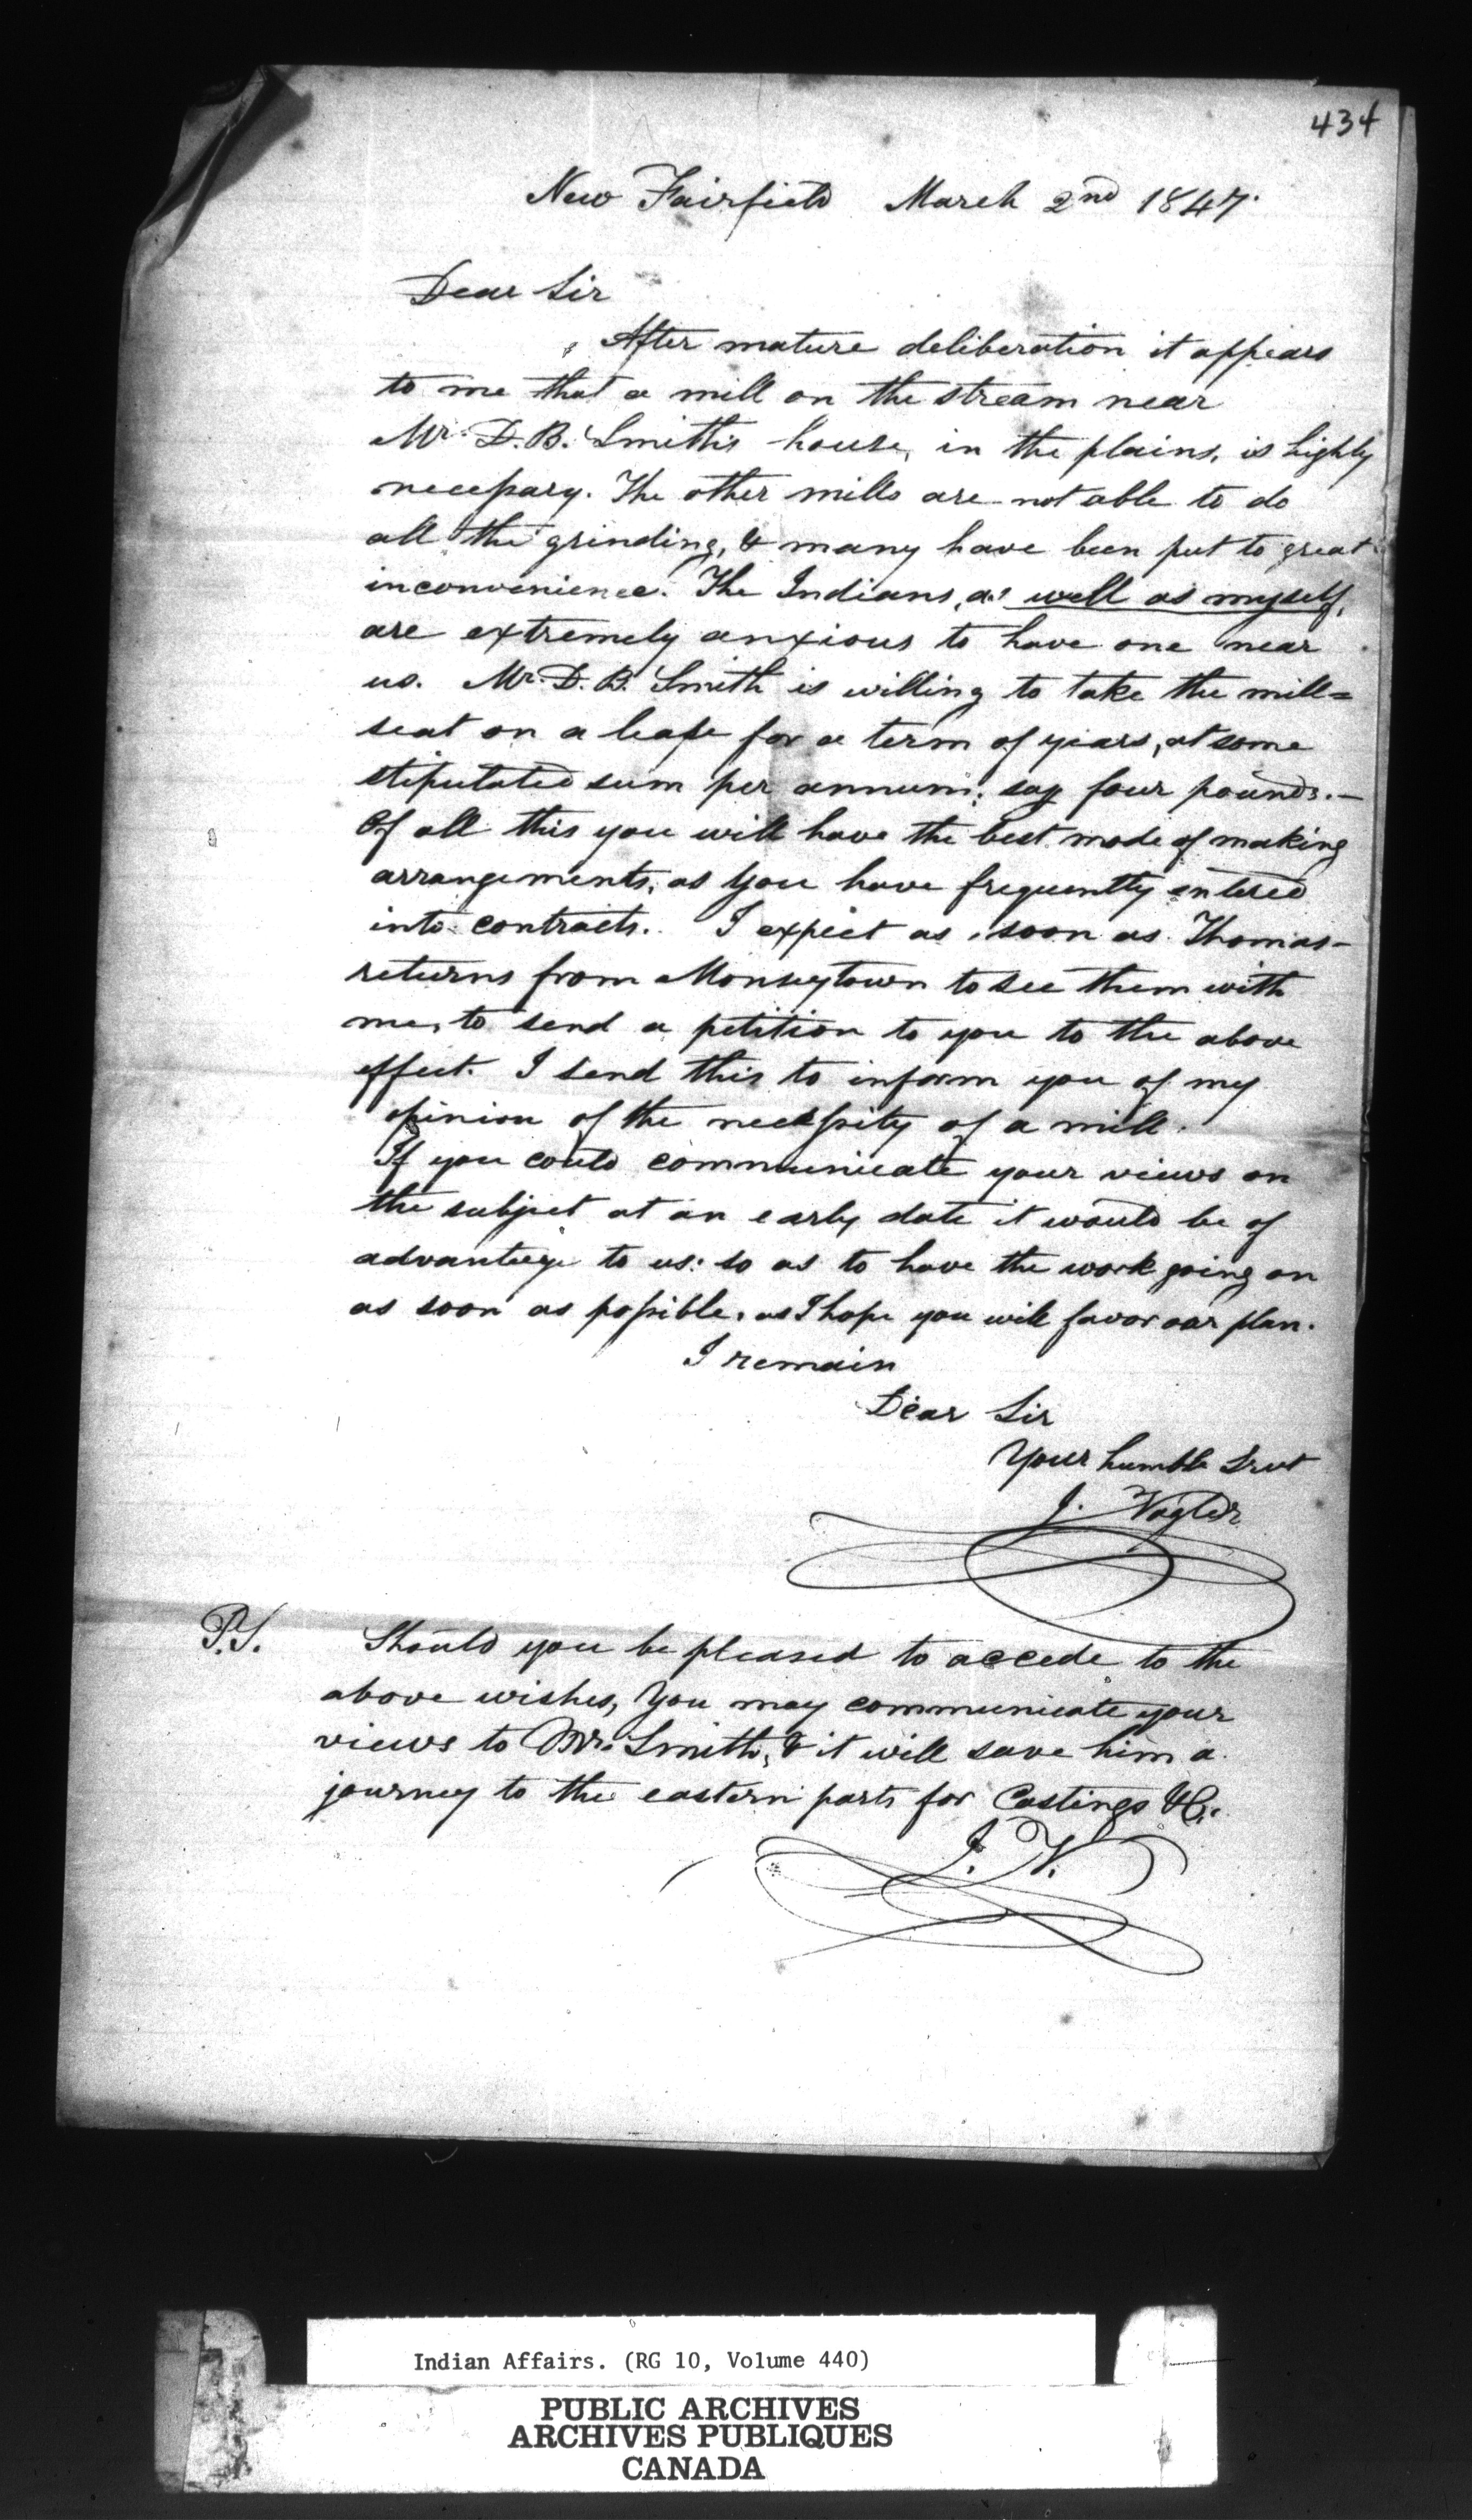 434
New Fairfield March 2nd 1847.
Dear Sir
After mature deliberation it appears
to me that a mill on the stream near
Mr. D. B. Smith's house, in the plains, is highly
necessary. The other mills are not able to do
all the grinding, & many have been put to great
inconvenience. The Indians, as well as myself,
are extremely anxious to have one near
us. Mr. D. B. Smith is willing to take the mill=
seat on a lease for a term of years, at some
stipulated sum per annum; say four pounds.—
Of all this you will have the best mode of making
arrangements, as you have frequently entered
into contracts. I expect as soon as Thomas
returns from Monseytown to see them with
me, to send a petition to you to the above
effect. I send this to inform you of my
opinion of the necessity of a mill.
If you could communicate your views on
the subject at an early date it would be of
advantage to us: so as to have the work going on
as soon as possible, as I hope you will favor our plan.
I remain
Dear Sir
Your humble Srvt
J. Vogler
P.S. Should you be pleased to accede to the
above wishes, you may communicate your
views to Mr. Smith, & it will save him a
journey to the eastern parts for Castings &c.
J. V.
Indian Affairs. (RG 10, Volume 440)
PUBLIC ARCHIVES
ARCHIVES PUBLIQUES
CANADA